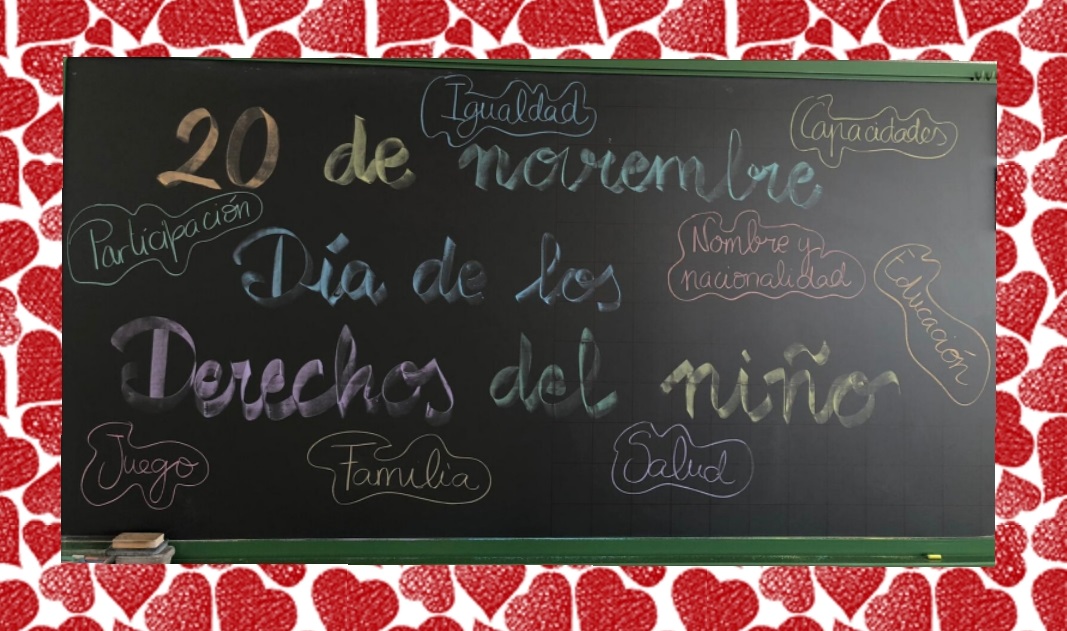 Igualdad
Capacidades
20 de noviembre
Participación
Nombre y
nacionalidad
Día de los
Educación
Derechos del niño
Juego
Familia
Salud